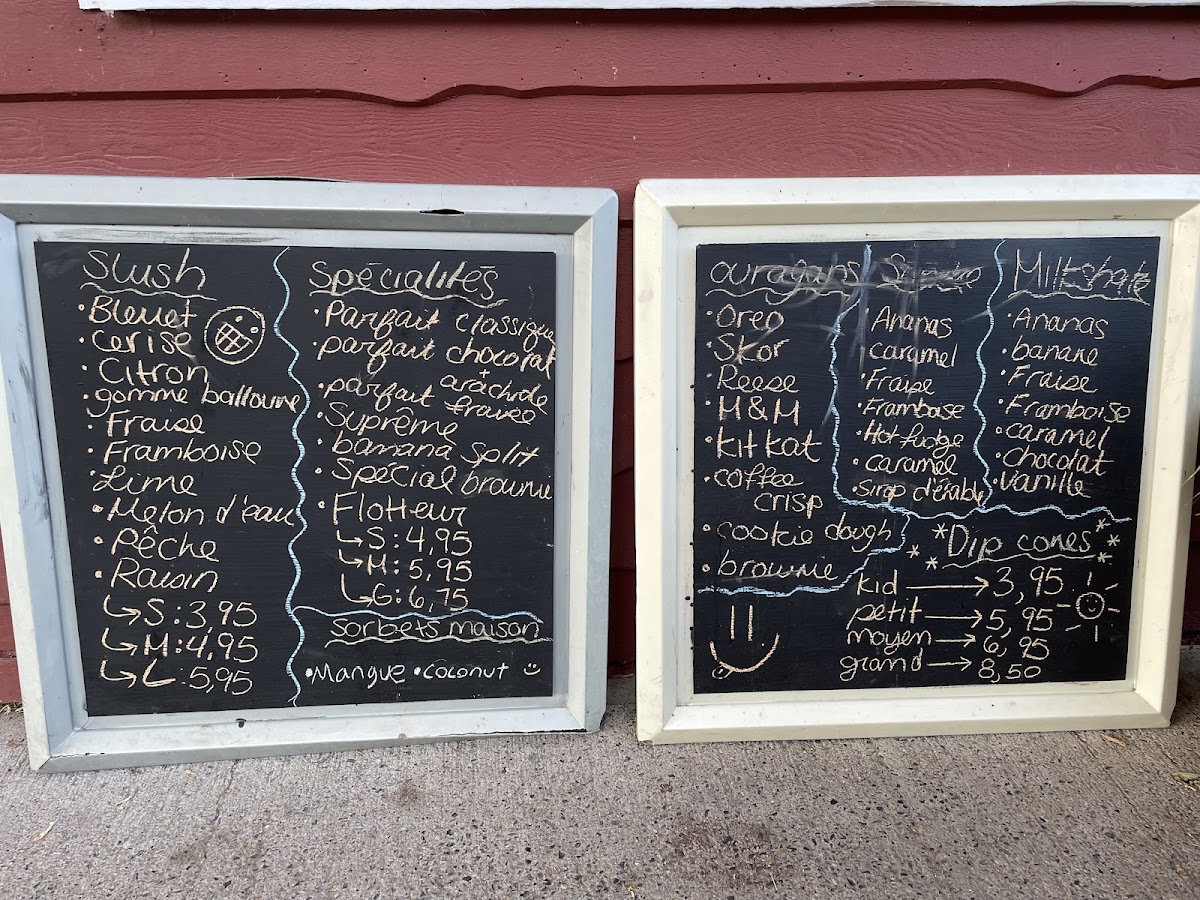 Slush
• Bleuet
• Cerise
• Citron
• gomme balloune
• Fraise
• Framboise
• Lime
• Melon d'eau
• Pêche
• Raisin
↳ S : 3,95
↳ M : 4,95
↳ L : 5,95
Spécialités
• Parfait classique
• parfait chocolat
+ arachide
• parfait fraise
• Suprême
• banana split
• Spécial brownie
• Flotteur
↳ S : 4,95
↳ M : 5,95
↳ G : 6,75
Sorbets maison
• Mangue • coconut
ouragans
• Oreo
• Skor
• Reese
• M & M
• Kit Kat
• coffee
crisp
• cookie dough
• brownie
• Ananas
• caramel
• Fraise
• Framboise
• Hot fudge
• caramel
• Sirop d'érable
Milkshake
• Ananas
• banane
• Fraise
• Framboise
• caramel
• chocolat
• Vanille
* Dip cones *
kid → 3,95
petit → 5,95
moyen → 6,95
grand → 8,50